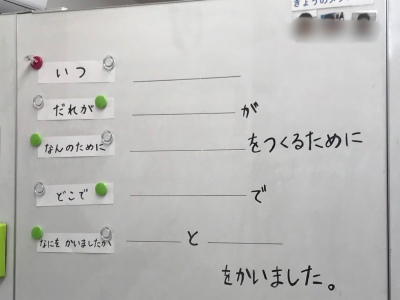 いつ
だれが が
なんのために をつくるために
どこで で
なにを かいましたか と
をかいました。